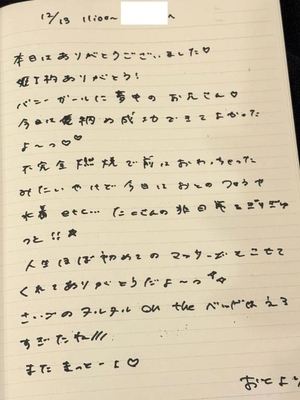 12/13 11:00~
本日はありがとうございました♡
姫予約ありがとう！
バニーガールに夢中のお兄さん♡
今日は姫納め成功できてよかった
よ〜っ♡♡
不完全燃焼で前はおわっちゃった
みたいやけど今日は
水着 etc... たくさんの
っと!!
人生ほぼ初めてのマッサージとこさせて
くれてありがとうだよ〜っ
さいごのヌルヌル on the べっどはえろ
すぎたね///
またまっとーよ♡
おとより